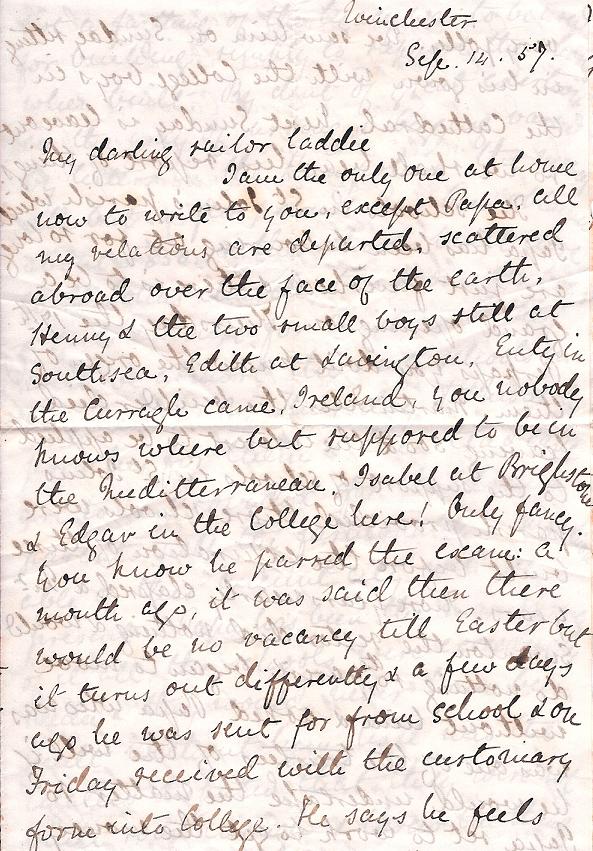 Winchester
Sep. 14. 57.
My darling sailor laddie
I am the only one at home
now to write to you, except Papa, all
my relations are departed, scattered
abroad over the face of the earth,
Henny & the two small boys still at
Southsea, Edith at Lavington, in
the Curragh camp, Ireland, you nobody
knows where but supposed to be in
the Mediterranean, Isabel at Brighstone
& Edgar in the College here! Only fancy.
You know he passed the exam: a
month ago, it was said then there
would be no vacancy till Easter but
it turns out differently & a few days
ago he was sent for from school & on
Friday received with the customary
form into College. He says he feels